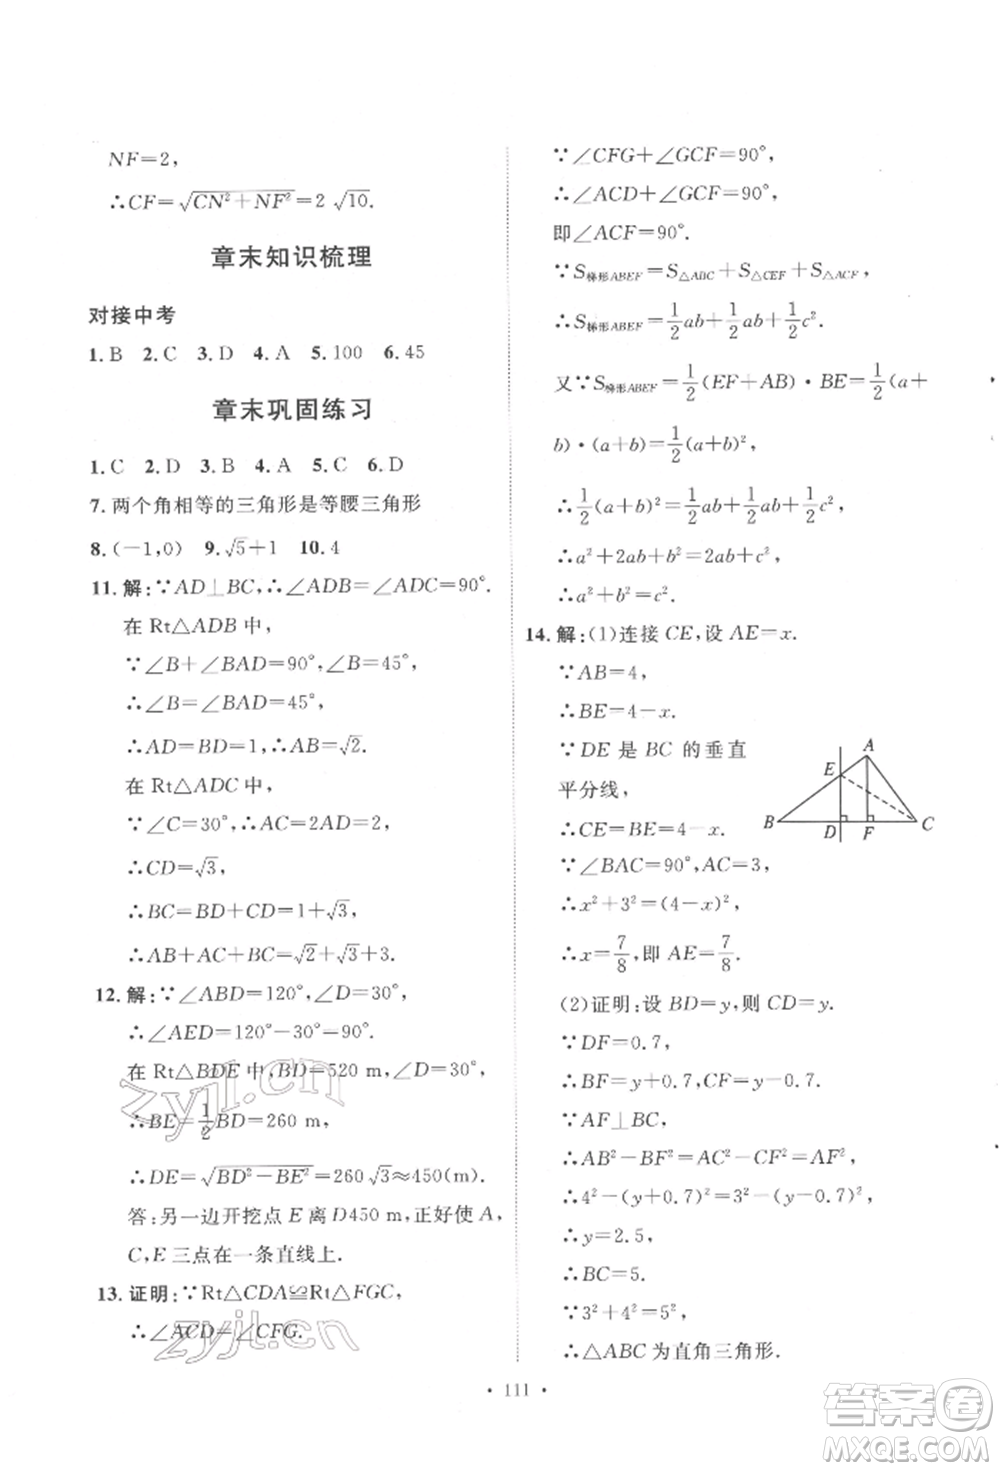 NF=2,
∴CF=√(CN²+NF²)=2√10.
章末知识梳理
对接中考
1.B 2.C 3.D 4.A 5.100 6.45
章末巩固练习
1.C 2.D 3.B 4.A 5.C 6.D
7.两个角相等的三角形是等腰三角形
8.(-1,0) 9.√5+1 10.4
11.解:∵AD⊥BC,∴∠ADB=∠ADC=90°.
在Rt△ADB中,
∵∠B+∠BAD=90°,∠B=45°,
∴∠B=∠BAD=45°,
∴AD=BD=1,∴AB=√2.
在Rt△ADC中,
∵∠C=30°,∴AC=2AD=2,
∴CD=√3,
∴BC=BD+CD=1+√3,
∴AB+AC+BC=√2+√3+3.
12.解:∵∠ABD=120°,∠D=30°,
∴∠AED=120°-30°=90°.
在Rt△BDE中,BD=520 m,∠D=30°,
∴BE=1/2BD=260 m,
∴DE=√(BD²-BE²)=260√3≈450(m).
答:另一边开挖点E离D450 m,正好使A,
C,E三点在一条直线上.
13.证明:∵Rt△CDA≌Rt△FGC,
∴∠ACD=∠CFG.
∵∠CFG+∠GCF=90°,
∴∠ACD+∠GCF=90°,
即∠ACF=90°.
∵S梯形ABEF=S△ABC+S△CEF+S△ACF,
∴S梯形ABEF=1/2ab+1/2ab+1/2c².
又∵S梯形ABEF=1/2(EF+AB)·BE=1/2(a+
b)·(a+b)=1/2(a+b)²,
∴1/2(a+b)²=1/2ab+1/2ab+1/2c²,
∴a²+2ab+b²=2ab+c²,
∴a²+b²=c².
14.解:(1)连接CE,设AE=x.
∵AB=4,
∴BE=4-x.
∵DE是BC的垂直
平分线,
∴CE=BE=4-x.
∵∠BAC=90°,AC=3,
∴x²+3²=(4-x)²,
∴x=7/8,即AE=7/8.
(2)证明:设BD=y,则CD=y.
∵DF=0.7,
∴BF=y+0.7,CF=y-0.7.
∵AF⊥BC,
∴AB²-BF²=AC²-CF²=AF²,
∴4²-(y+0.7)²=3²-(y-0.7)²,
∴y=2.5,
∴BC=5.
∵3²+4²=5²,
∴△ABC为直角三角形.
A
E
B
D
F
C
·111·
zyjl.cn
zyjl.cn
答案圈
MXQE.COM